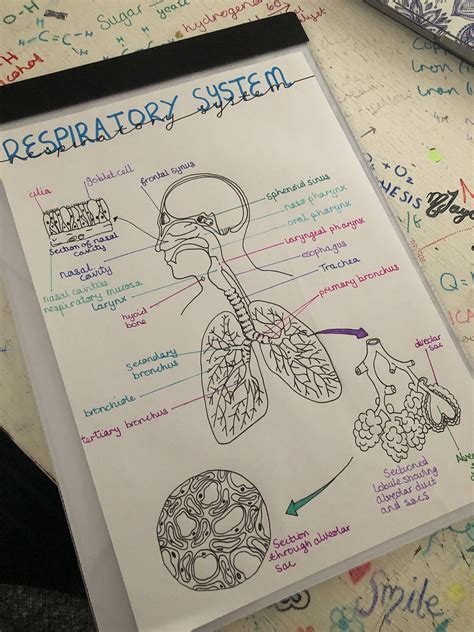 RESPIRATORY SYSTEM
respiratory system
cilia
Goblet cell
frontal synus
Section of nasal
cavity
nasal
cavity
nasal cavities
respiratory mucosa
larynx
hyoid
bone
sphenoid sinus
naso pharynx
oral pharynx
laryngeal pharynx
esophagus
Trachea
primary bronchus
secondary
bronchus
bronchiole
tertiary bronchus
alveolar
sac
Sectioned
lobule showing
alveolar duct
and sacs
Section
through alveolar
sac
O-H
C=C-C
Sugar
yeast
hydrogen
alcohol
+ O2
Smile